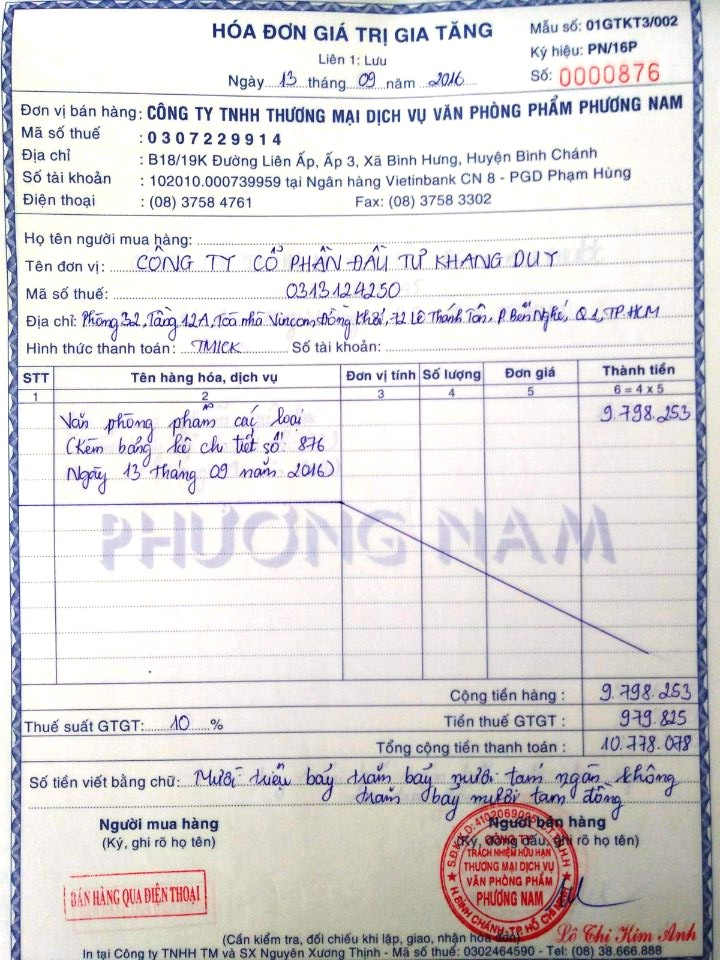 HÓA ĐƠN GIÁ TRỊ GIA TĂNG
Mẫu số: 01GTKT3/002
Liên 1: Lưu
Ký hiệu: PN/16P
Ngày 13 tháng 09 năm 2016
Số: 0000876
Đơn vị bán hàng: CÔNG TY TNHH THƯƠNG MẠI DỊCH VỤ VĂN PHÒNG PHẨM PHƯƠNG NAM
Mã số thuế : 0307229914
Địa chỉ : B18/19K Đường Liên Ấp, Ấp 3, Xã Bình Hưng, Huyện Bình Chánh
Số tài khoản : 102010.000739959 tại Ngân hàng Vietinbank CN 8 - PGD Phạm Hùng
Điện thoại : (08) 3758 4761 Fax: (08) 3758 3302
Họ tên người mua hàng:
Tên đơn vị: CÔNG TY CỔ PHẦN ĐẦU TƯ KHANG DUY
Mã số thuế: 0313124250
Địa chỉ: Phòng 32, Tầng 12A, Toà nhà Vincom Đồng Khởi, 72 Lê Thánh Tôn, P. Bến Nghé, Q1, TP.HCM
Hình thức thanh toán: TM/CK Số tài khoản:
STT Tên hàng hóa, dịch vụ Đơn vị tính Số lượng Đơn giá Thành tiền
1 2 3 4 5 6 = 4 x 5
Văn phòng phẩm các loại 9.798.253
(Kèm bảng kê chi tiết số: 876
Ngày 13 tháng 09 năm 2016)
PHƯƠNG NAM
Cộng tiền hàng : 9.798.253
Thuế suất GTGT: 10 % Tiền thuế GTGT : 979.825
Tổng cộng tiền thanh toán : 10.778.078
Số tiền viết bằng chữ: Mười triệu bảy trăm bảy mươi tám ngàn không
trăm bảy mươi tám đồng
Người mua hàng Người bán hàng
(Ký, ghi rõ họ tên) (Ký, đóng dấu, ghi rõ họ tên)
S.Đ.K.K.D: 4102069005 - C.T.T.N.H.H
CÔNG TY
TRÁCH NHIỆM HỮU HẠN
THƯƠNG MẠI DỊCH VỤ
VĂN PHÒNG PHẨM
PHƯƠNG NAM
H. BÌNH CHÁNH - TP. HỒ CHÍ MINH
BÁN HÀNG QUA ĐIỆN THOẠI
Lô Thị Kim Anh
(Cần kiểm tra, đối chiếu khi lập, giao, nhận hóa đơn)
In tại Công ty TNHH TM và SX Nguyên Xương Thịnh - Mã số thuế: 0302464590 - Đt: (08) 38.666.888